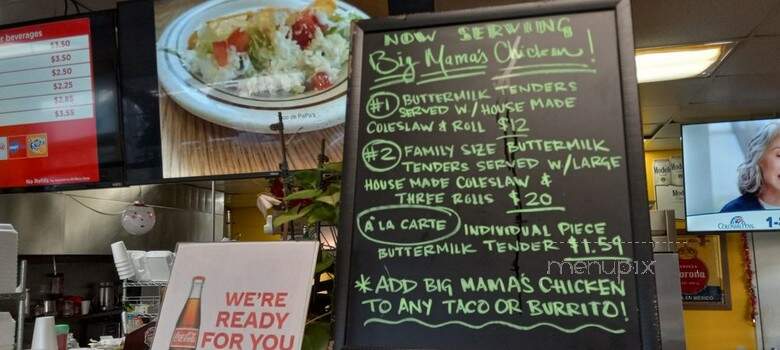 beverages
$1.50
$3.50
$2.50
$2.25
$2.85
$3.55
No Refills
NOW SERVING
Big Mama's Chicken!
#1 BUTTERMILK TENDERS
SERVED W/HOUSE MADE
COLESLAW & ROLL $12
#2 FAMILY SIZE BUTTERMILK
TENDERS SERVED W/LARGE
HOUSE MADE COLESLAW &
THREE ROLLS $20
A LA CARTE INDIVIDUAL PIECE
BUTTERMILK TENDER $1.59
*ADD BIG MAMA'S CHICKEN
TO ANY TACO OR BURRITO!
WE'RE
READY
FOR YOU
Coca-Cola
Modelo
Corona
COLONIAL PENN
1-8
menupix